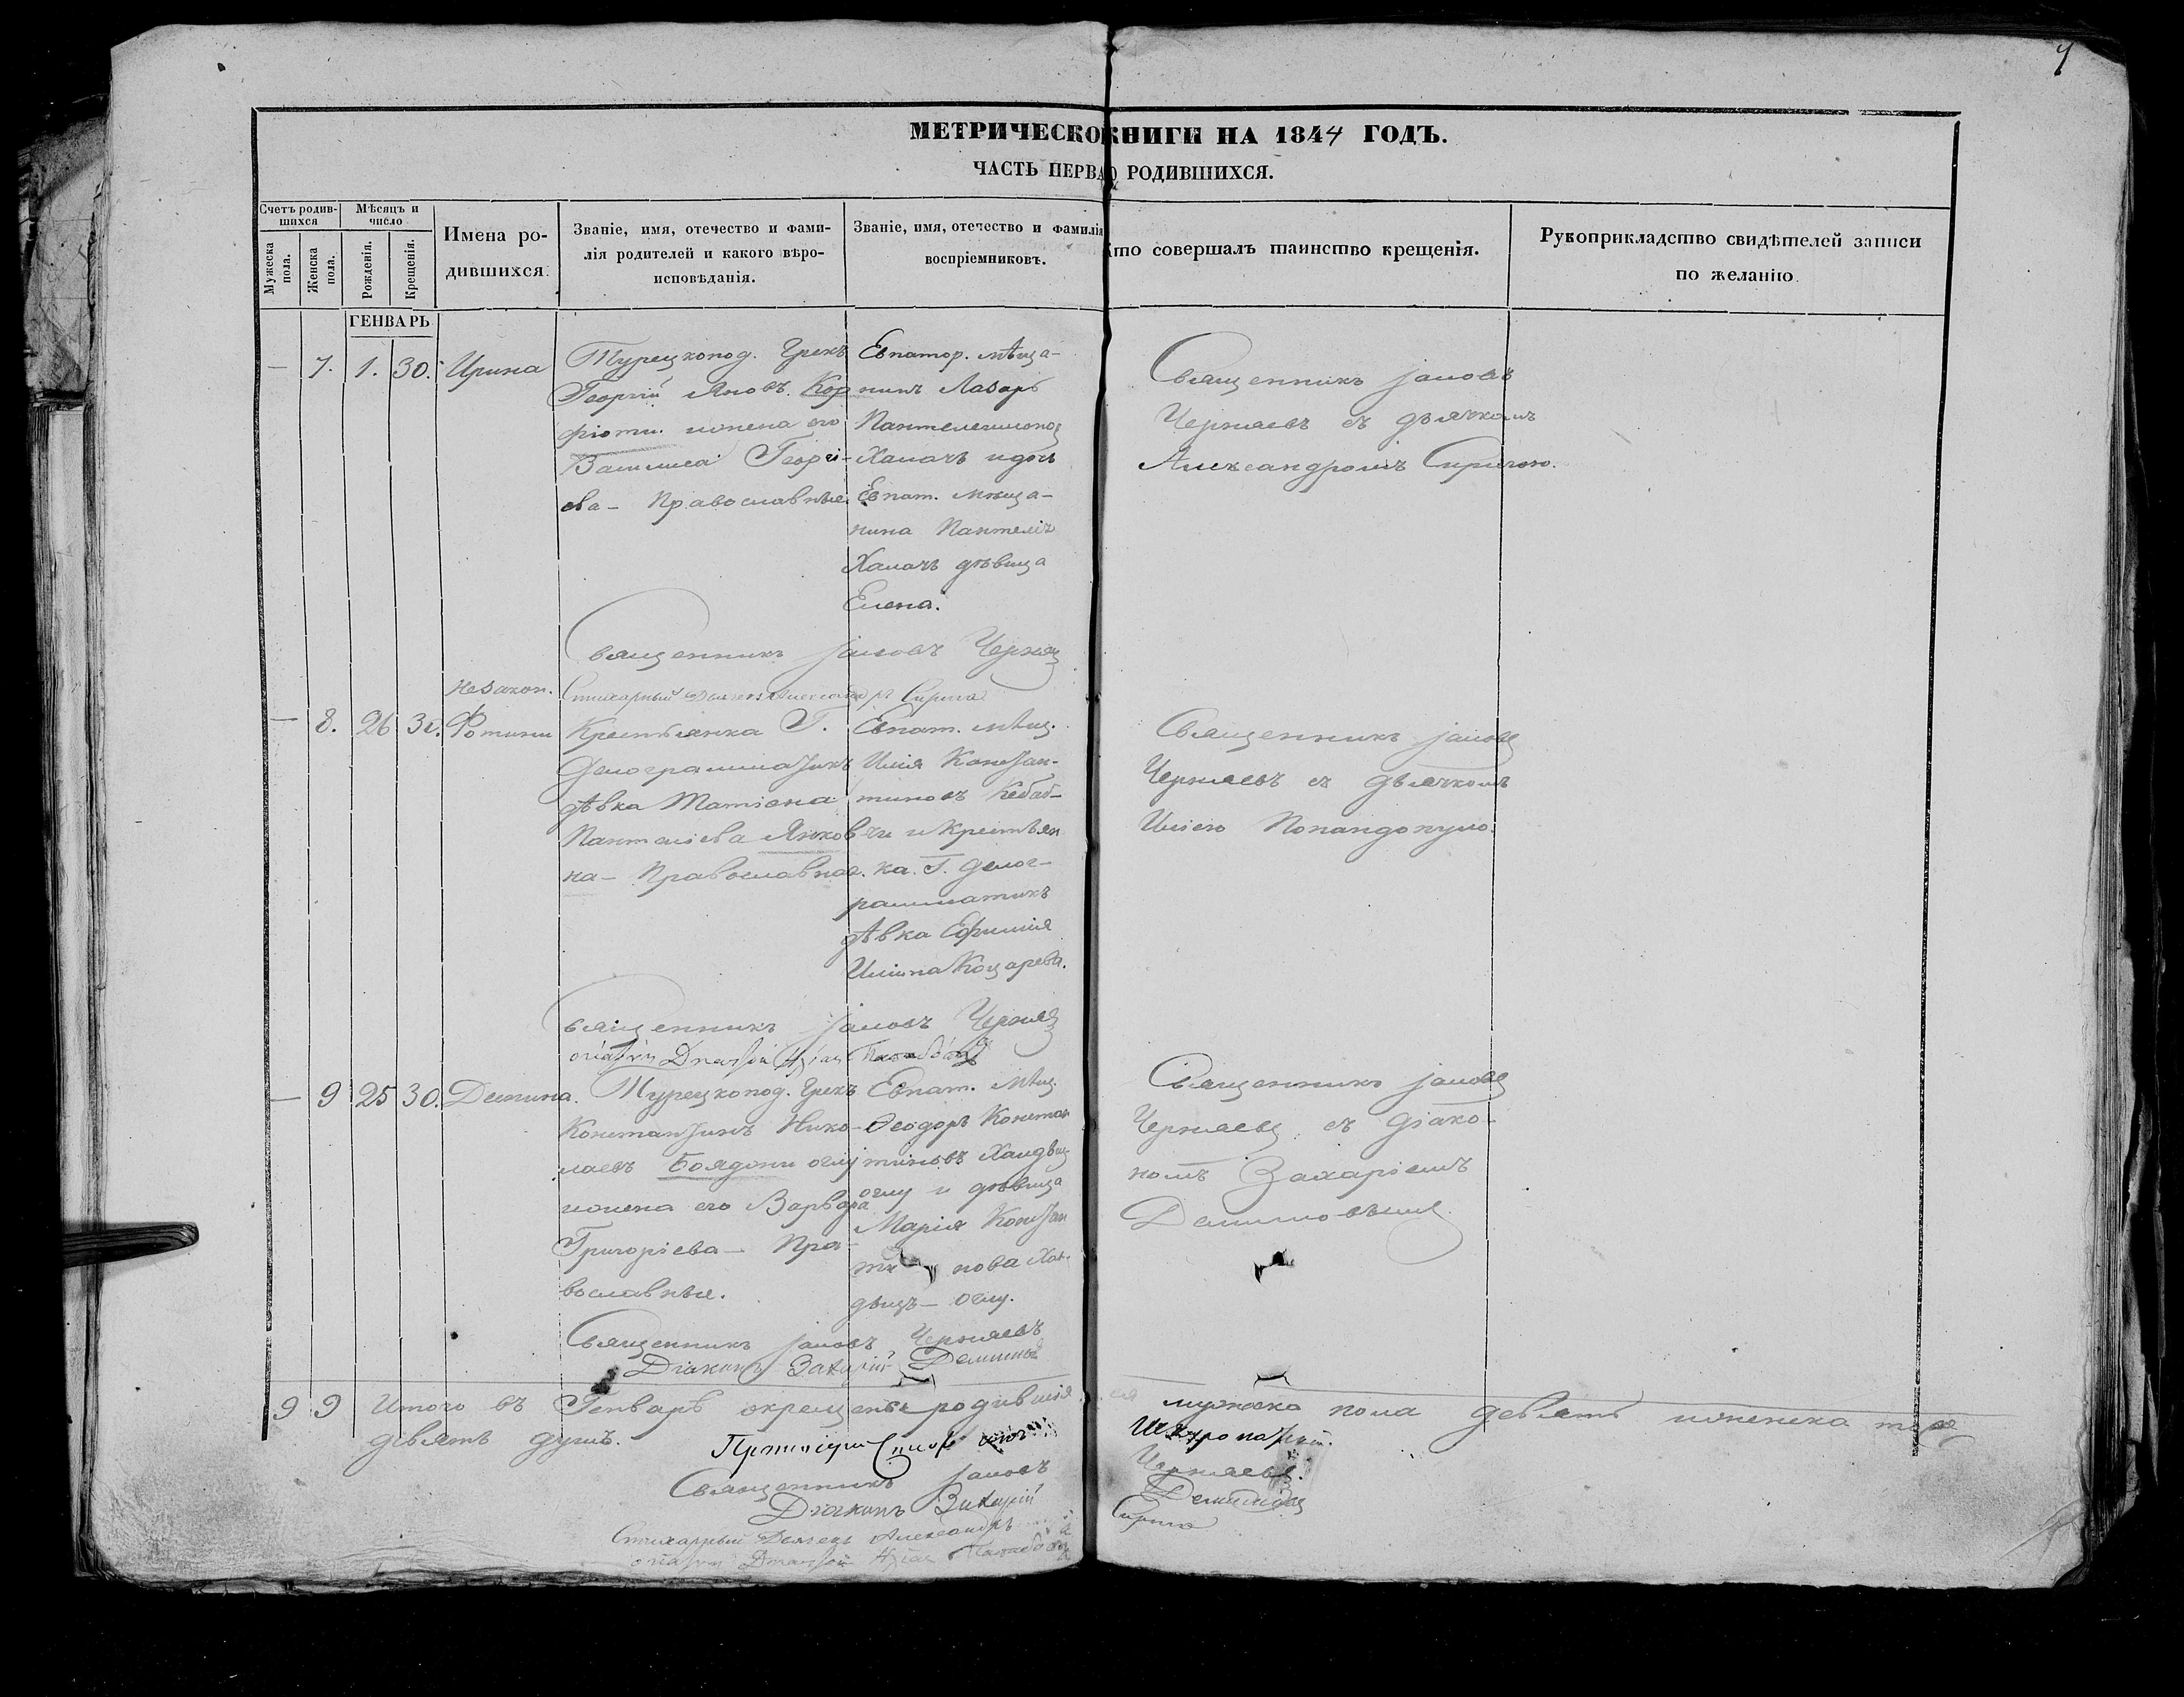 7
МЕТРИЧЕСКО КНИГИ НА 1844 ГОДЪ.
ЧАСТЬ ПЕРВАЯ О РОДИВШИХСЯ.
Счетъ родив-
шихся
Мужеска пола.
Женска пола.
Мѣсяцъ и
число
Рожденія.
Крещенія.
Имена ро-
дившихся.
Званіе, имя, отечество и фами-
лія родителей и какого вѣро-
исповѣданія.
Званіе, имя, отечество и фамилія
воспріемниковъ.
Кто совершалъ таинство крещенія.
Рукоприкладство свидѣтелей записи
по желанію.
ГЕНВАРЬ
— 7. 1. 30. Ирина
Турецкопод. Грекъ
Георгій Яновъ Кор
фіоти. и жена его
Василиса Георгі-
ева — Православные.
Евпатор. мѣща-
нинъ Лазарь
Пантелеимонов
Халачъ и дочь
Евпат. мѣща-
нина Пантелія
Халачъ дѣвица
Елена.
Священникъ Іаковъ
Черняевъ съ дьячкомъ
Александромъ Сиригою.
Священникъ Іаковъ Черняев
Стихарный Дьячекъ Александръ Сирига
Незакон.
— 8. 26 31. Фотини
Крестьянка Г.
Делограмматикъ
дѣвка Матіона
Пантеліева Янков
на — Православная.
Евпат. мѣщ.
Илія Констан-
тиновъ Кебаб-
чи и Крестьян
ка Г. Делог-
рамматикъ
дѣвка Ефимія
Ильина Коцарева.
Священникъ Іаковъ
Черняевъ съ дьячкомъ
Иліею Попандопуло.
Священникъ Іаковъ Черняев
— 9 25 30. Деспина.
Турецкопод. Грекъ
Константинъ Нико-
лаевъ Бояджи оглу
и жена его Варвара
Григоріева — Пра-
вославные.
Евпат. мѣщ.
Ѳеодоръ Констан
тиновъ
оглу и дѣвица
Марія Констан
ти нова
оглу.
Священникъ Іаковъ
Черняевъ съ діако-
номъ Захаріемъ
Священникъ Іаковъ Черняевъ
Діаконъ Захарій
9 9 Итого въ Генварѣ окрещены родившія
ся мужеска пола девять и женска тоже
девять душъ.
Священникъ Іаковъ Черняевъ.
Діаконъ Захарій
Стихарный Дьячекъ Александръ Сирига